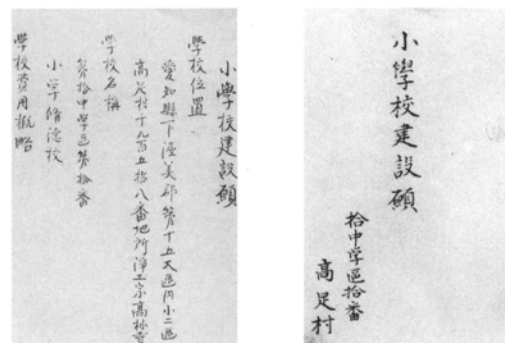 小學校建設願
拾中学區拾番
高足村
小學校建設願
學校位置
愛知縣下渥美郡第十五大區内小二區
高足村十九百五拾八番地所浄土宗高林
學校名稱
第拾中学區第拾番
小学脩徳校
學校費用概略